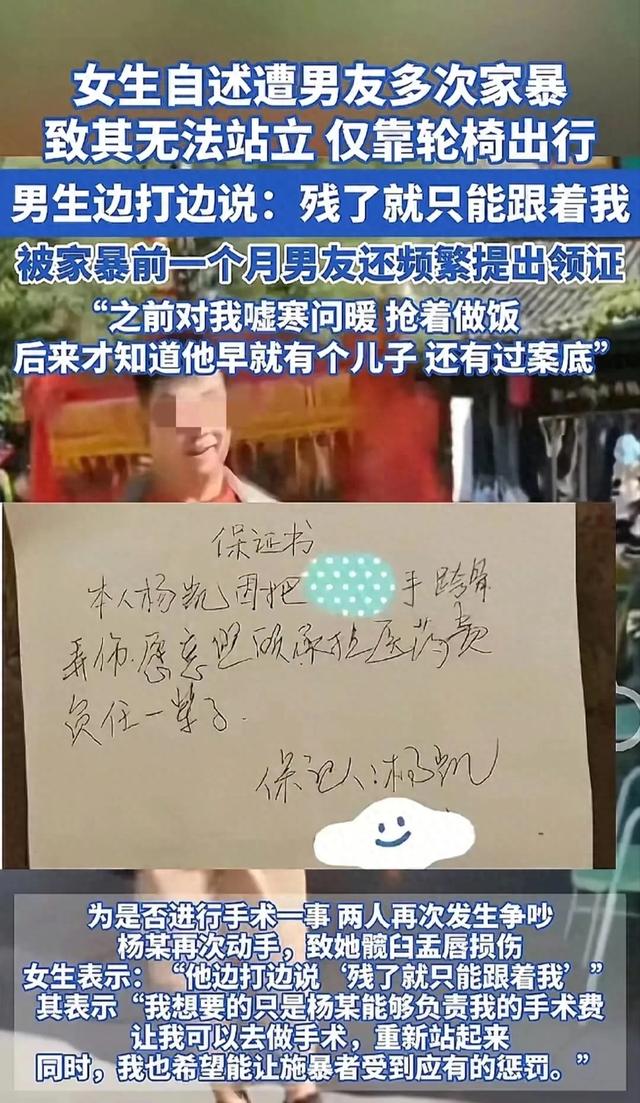 女生自述遭男友多次家暴
致其无法站立 仅靠轮椅出行
男生边打边说：残了就只能跟着我
被家暴前一个月男友还频繁提出领证
“之前对我嘘寒问暖 抢着做饭
后来才知道他早就有个儿子 还有过案底”
保证书
本人杨凯因把 手跨骨
弄伤.愿意照顾承担医药费
负任一辈子.
保证人:杨凯
为是否进行手术一事 两人再次发生争吵
杨某再次动手，致她髋臼盂唇损伤
女生表示：“他边打边说‘残了就只能跟着我’”
其表示“我想要的只是杨某能够负责我的手术费
让我可以去做手术，重新站起来
同时，我也希望能让施暴者受到应有的惩罚。”